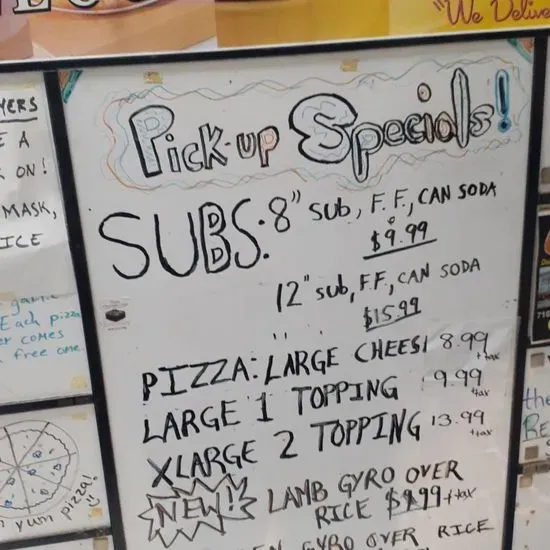 "We Delive
YERS
E A
K ON!
MASK,
ICE
game
Each pizza
er comes
free one
yum pizza!
Pick-up Specials!
SUBS: 8" SUB, F.F., CAN SODA
$9.99
12" SUB, F.F., CAN SODA
$15.99
PIZZA: LARGE CHEESE 8.99
+tax
LARGE 1 TOPPING 9.99
+tax
XLARGE 2 TOPPING 13.99
+tax
NEW!! LAMB GYRO OVER
RICE $9.99+tax
EN GYRO OVER RICE
the
RE